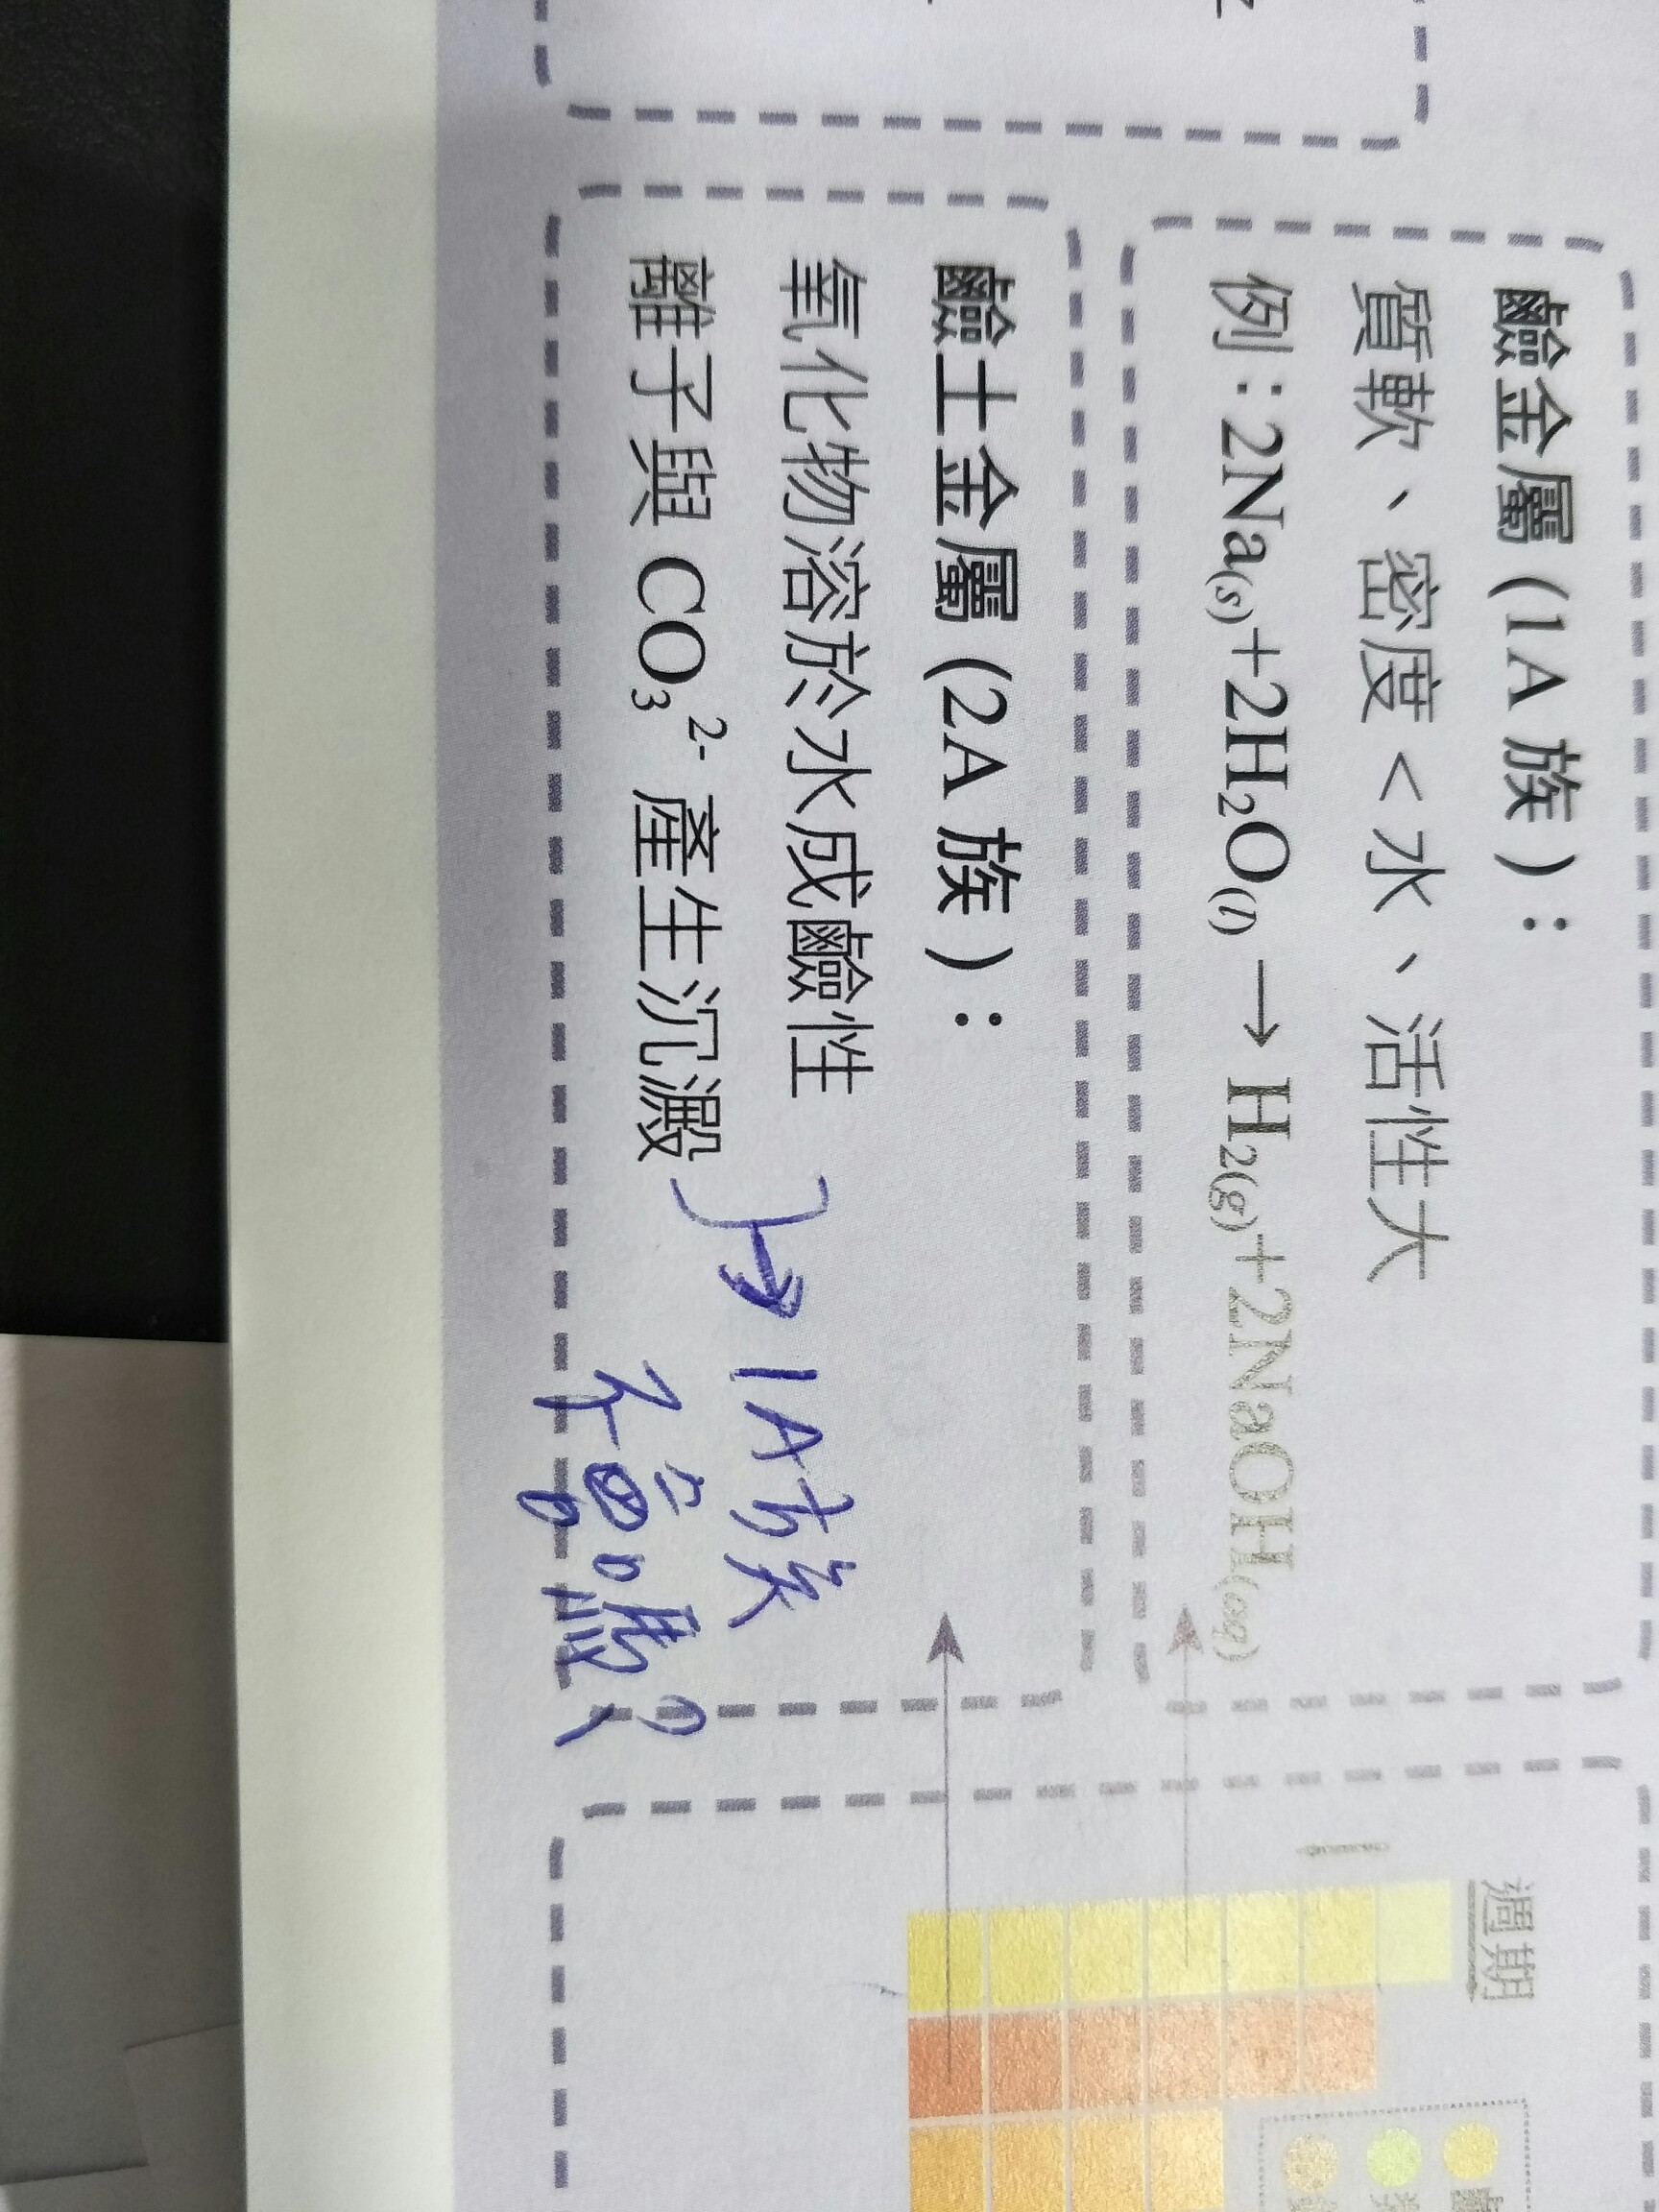 鹼金屬 (1A 族)：
質軟、密度 < 水、活性大
例：2Na(s)+2H₂O(l) → H₂(g)+2NaOH(aq)
鹼土金屬 (2A 族)：
氧化物溶於水成鹼性
離子與 CO₃²⁻ 產生沉澱
→ 1A族
不會嗎?
週期